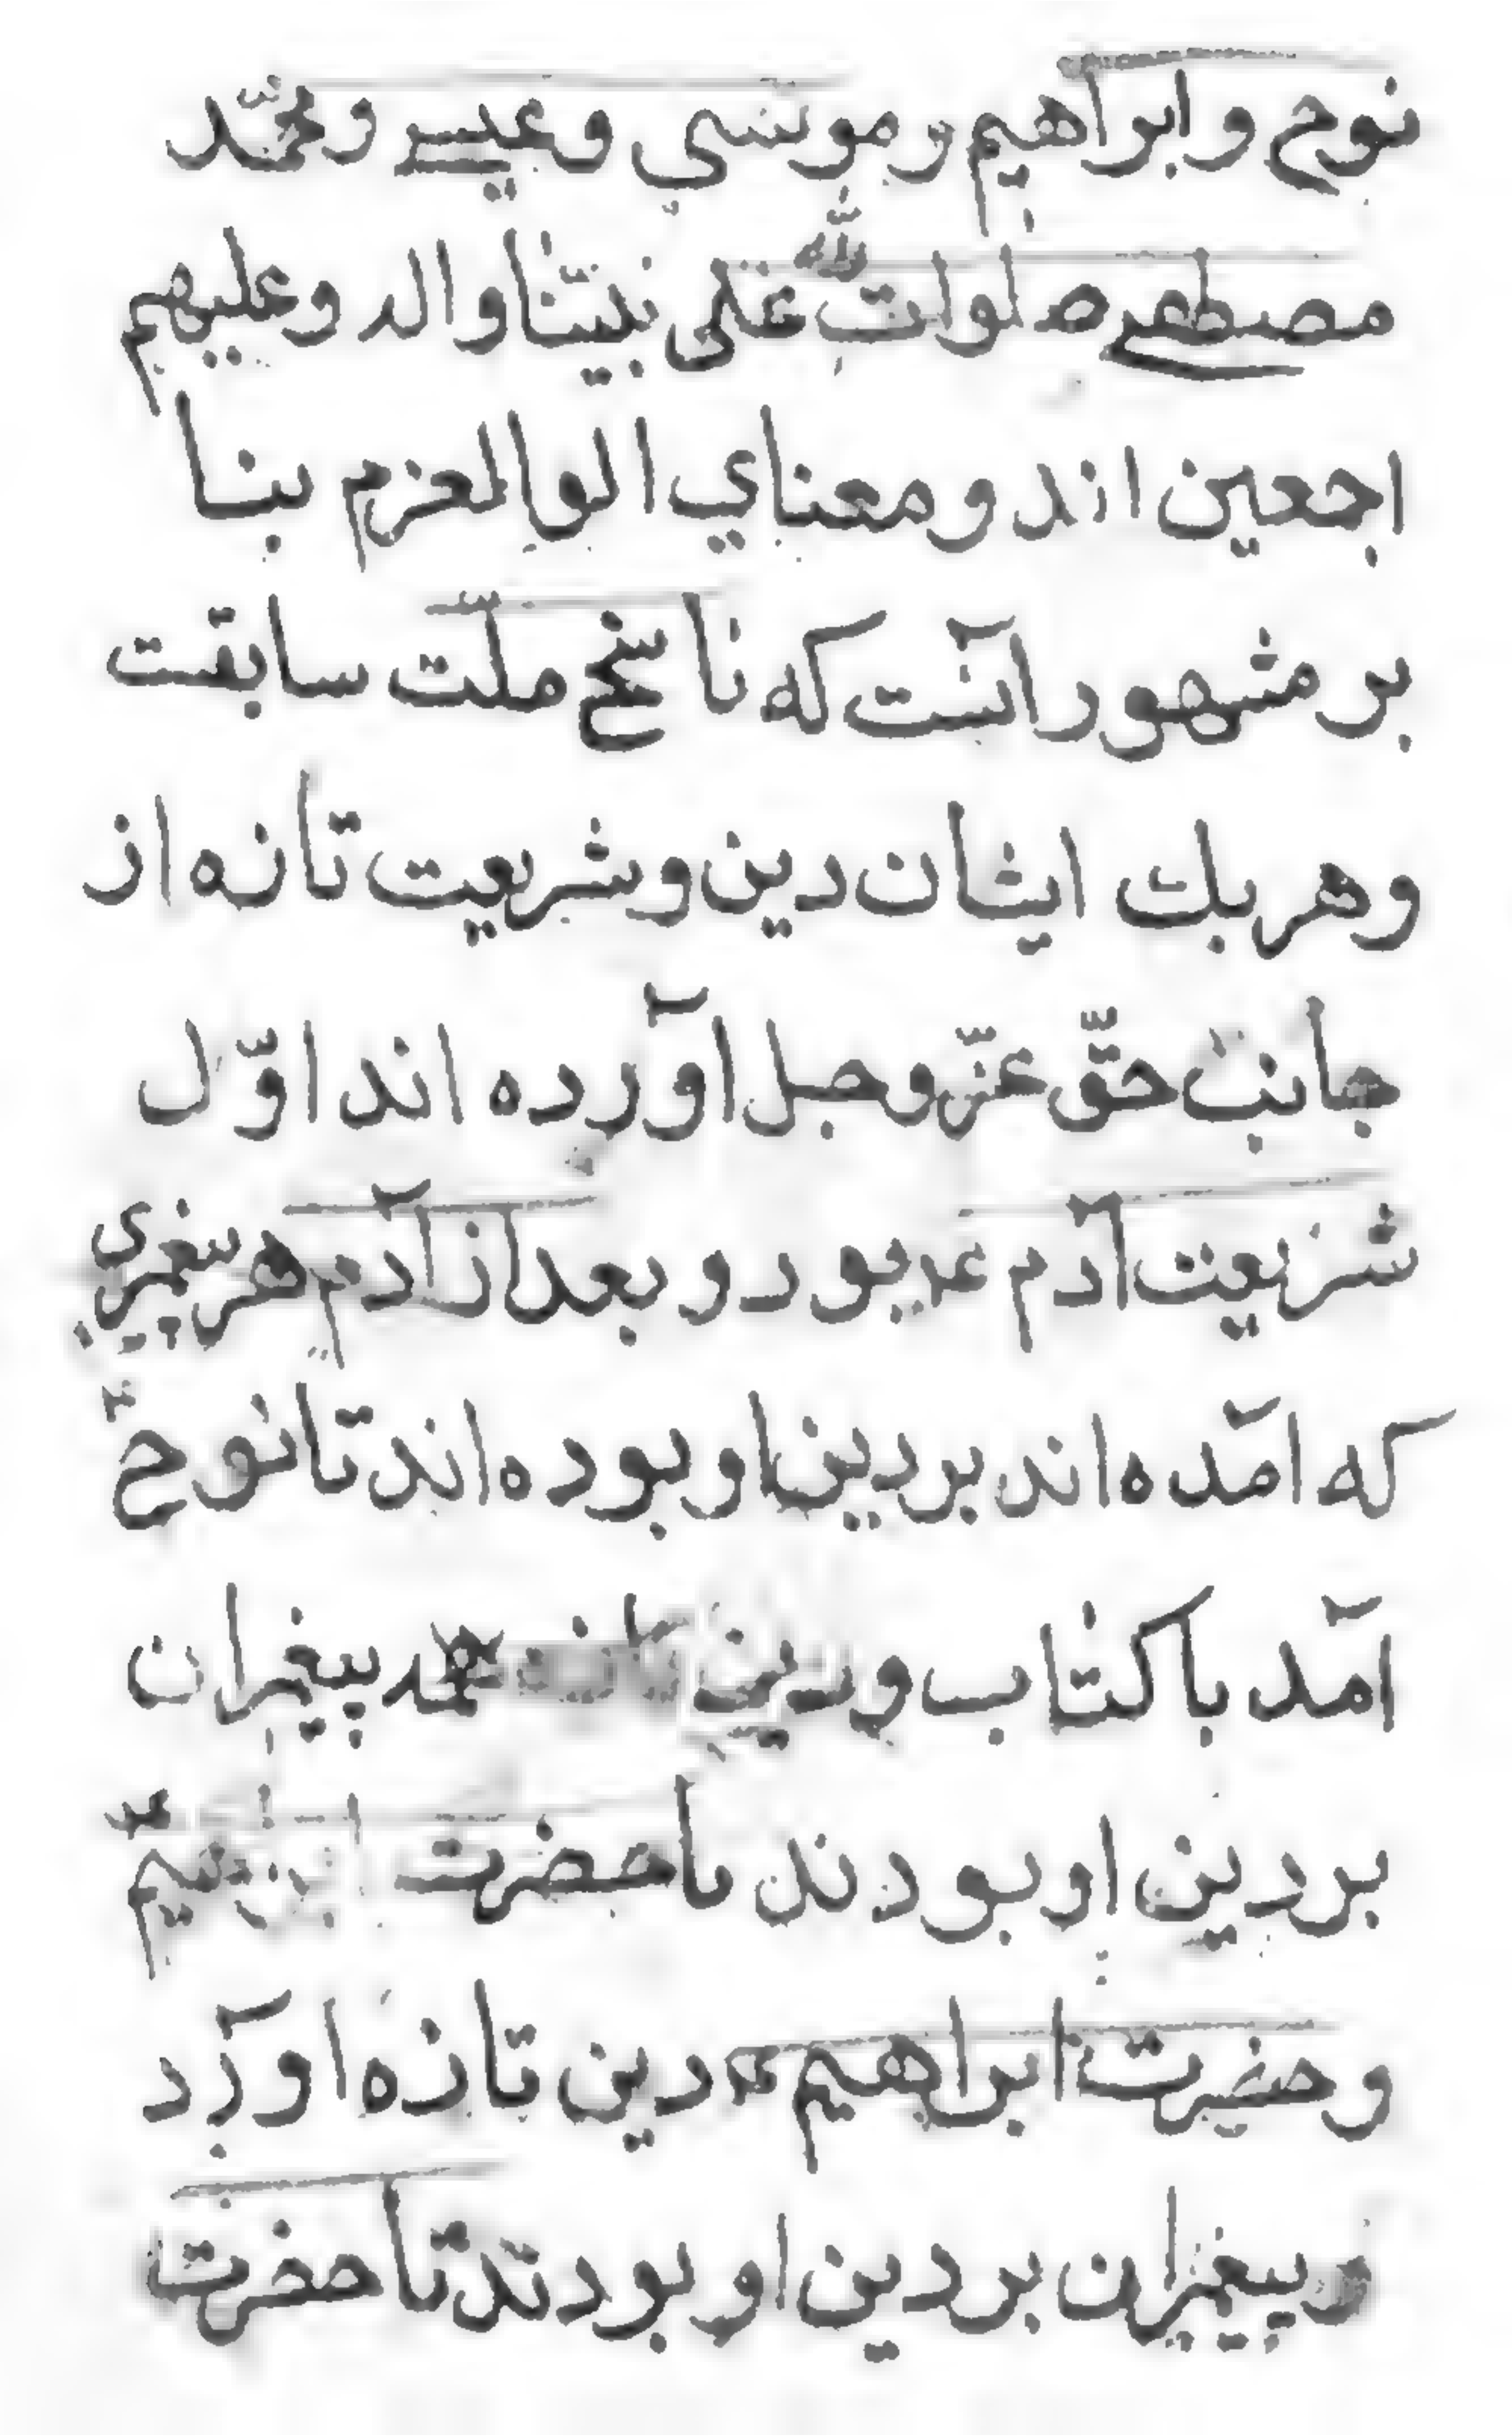 نوح و ابراهیم و موسی و عیسی و محمّد
مصطفی صلوات الله علی نبیّنا واله وعلیهم
اجمعین اند و معنای الوالعزم بنا
بر مشهور آنست که ناسخ ملّت سابقت
وهر یك ایشان دین و شریعت تازه از
جانب حقّ عزّ و جل آورده اند اوّل
شریعت آدم ع بود و بعد از آدم هر پیغمبری
که آمده اند بر دین او بوده اند تا نوح ع
آمد با کتاب و دین تازه همه پیغمبران
بر دین او بودند تا حضرت ابراهیم ع
و حضرت ابراهیم ع دین تازه آورد
و پیغمبران بر دین او بودند تا حضرت